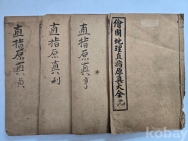 繪圖地理直指原真大全 元
直指原真 亨
直指原真 利
直指原真 貞